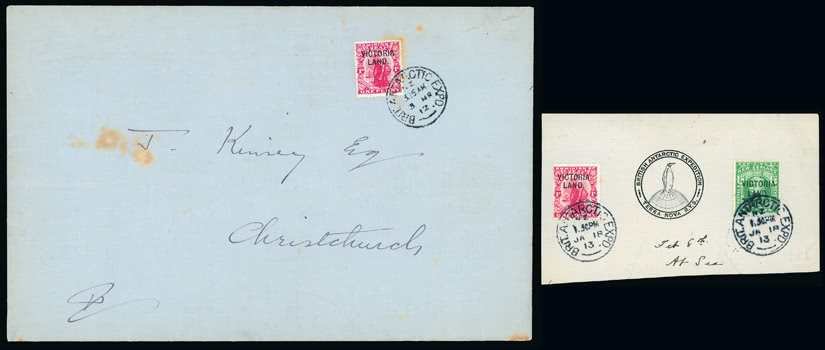 VICTORIA
LAND.
ONE PENNY
BRIT. ANTARCTIC EXPD.
3 MR
12.
J. Kinsey Esq
Christchurch
BRITISH ANTARCTIC EXPEDITION
TERRA NOVA R.Y.S.
VICTORIA
LAND.
VICTORIA
LAND.
BRIT. ANTARCTIC EXPD.
1.30PM
JA 18
13.
BRIT. ANTARCTIC EXPD.
1.30PM
JA 18
13.
Feb 6th.
At Sea